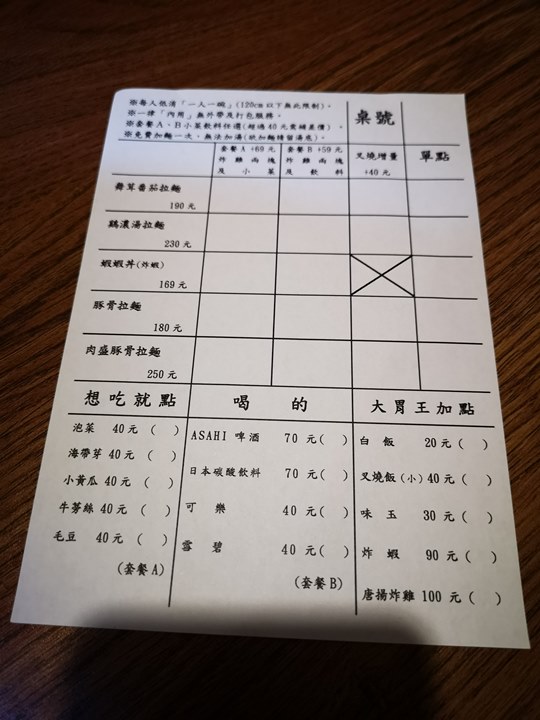 ※每人低消「一人一碗」(120cm以下無此限制)。
※一律「內用」無外帶及打包服務。
※套餐A、B小菜飲料任選(超過40元需補差價)。
※免費加麵一次、無法加湯(欲加麵請留湯底)。
桌號
套餐A +69元
炸雞兩塊
及小菜
套餐B +59元
炸雞兩塊
及飲料
叉燒增量
+40元
單點
舞茸番茄拉麵
190元
鷄濃湯拉麵
230元
蝦蝦丼(炸蝦)
169元
豚骨拉麵
180元
肉盛豚骨拉麵
250元
想吃就點
泡菜 40元 ( )
海帶芽 40元 ( )
小黃瓜 40元 ( )
牛蒡絲 40元 ( )
毛豆 40元 ( )
(套餐A)
喝的
ASAHI 啤酒 70元( )
日本碳酸飲料 70元( )
可樂 40元( )
雪碧 40元( )
(套餐B)
大胃王加點
白飯 20元( )
叉燒飯(小) 40元( )
味玉 30元( )
炸蝦 90元( )
唐揚炸雞 100元( )